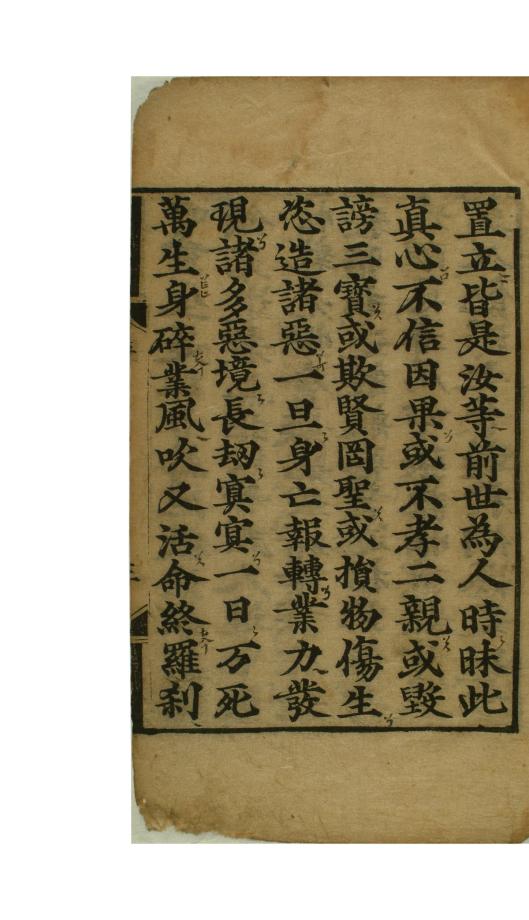 置立皆是汝等前世為人時昧此
真心不信因果或不孝二親或毀
謗三寶或欺賢罔聖或損物傷生
恣造諸惡一旦身亡報轉業力發
現諸多惡境長劫寞寞一日万死
萬生身碎業風吹又活命終羅刹